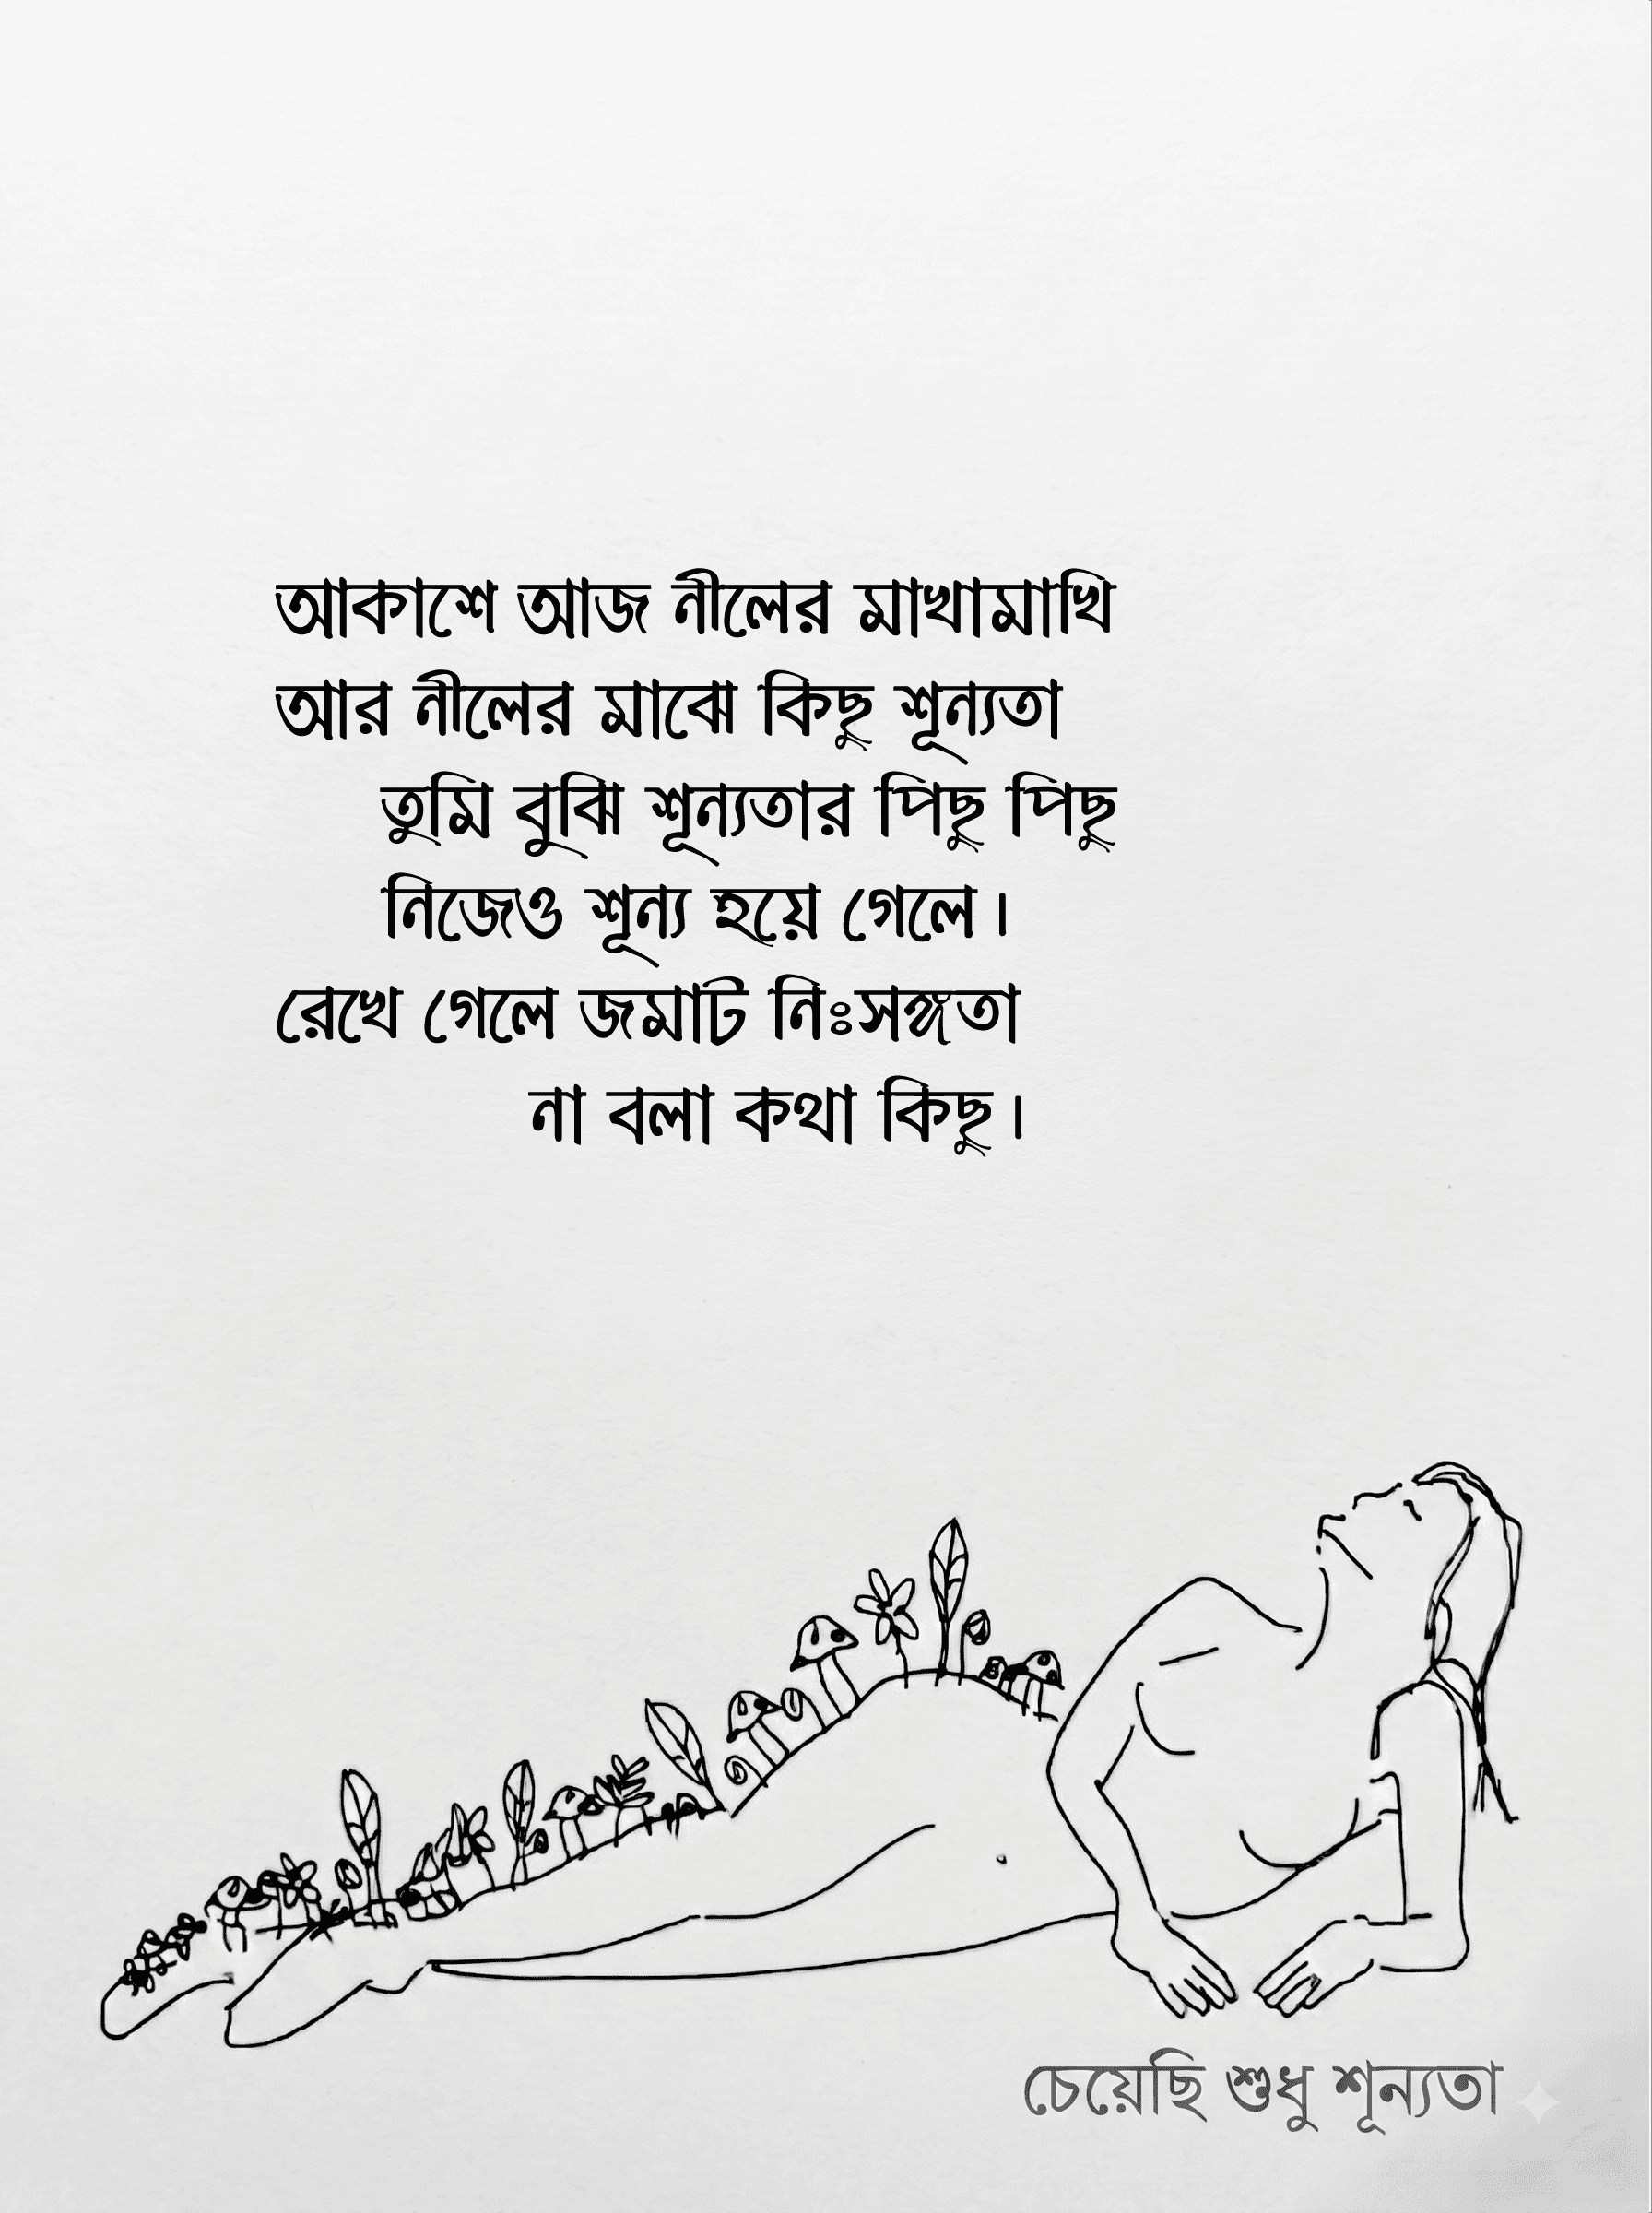 আকাশে আজ নীলের মাখামাখি
আর নীলের মাঝে কিছু শূন্যতা
তুমি বুঝি শূন্যতার পিছু পিছু
নিজেও শূন্য হয়ে গেলে।
রেখে গেলে জমাট নিঃসঙ্গতা
না বলা কথা কিছু।
চেয়েছি শুধু শূন্যতা